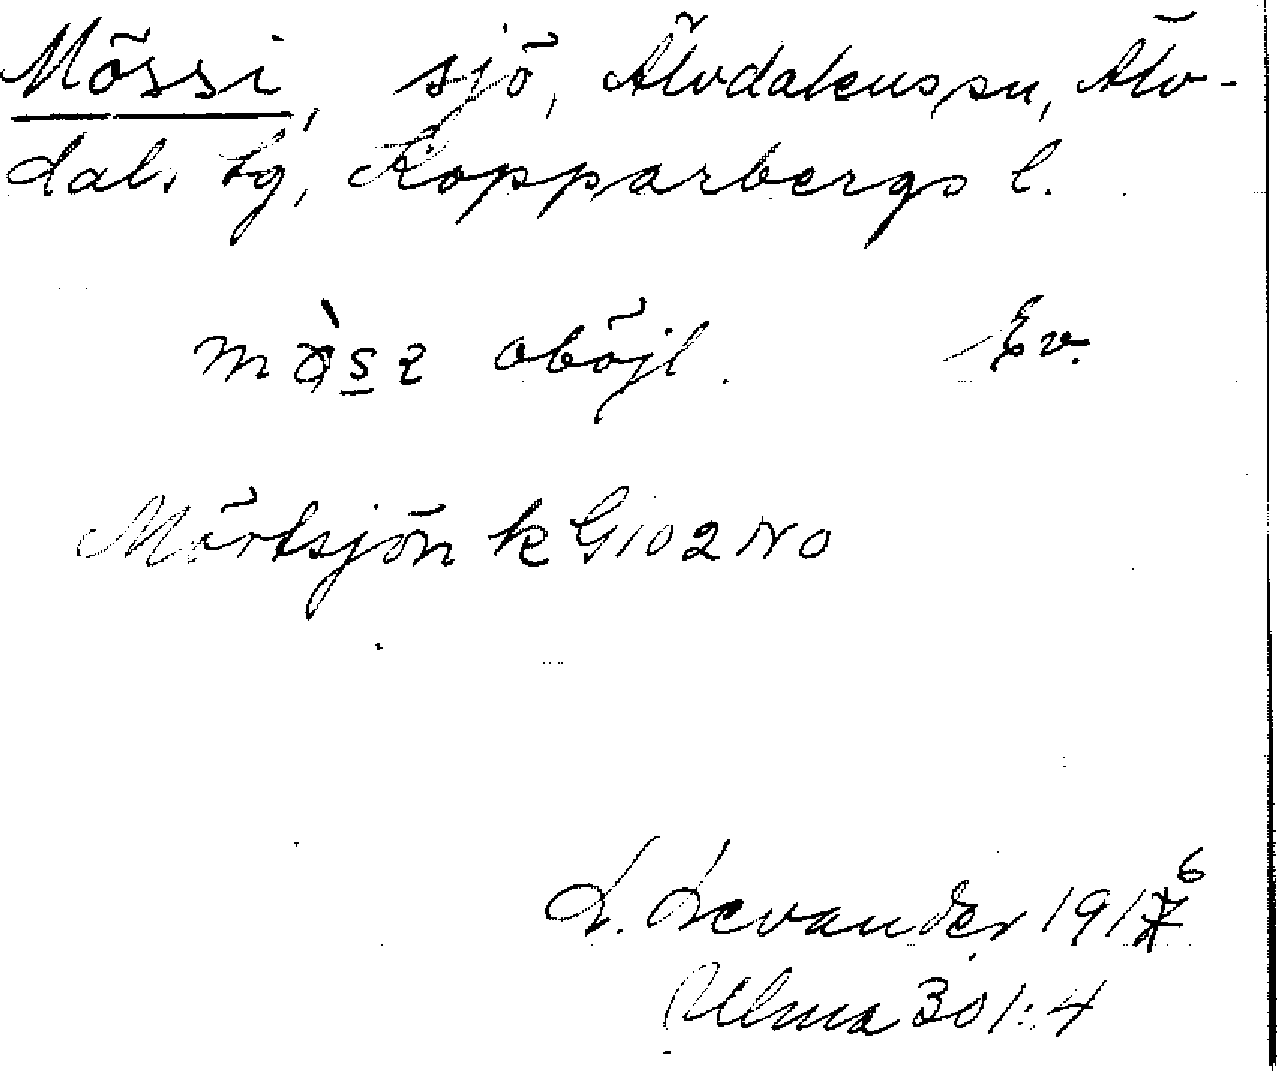 Mössi, sjö, Älvdalens sn, Älv-
dals tg, Kopparbergs l.
mo᷈̀sz oböjl. Ev.
Mörtsjön k G 102 NO
L. Levander 1916
Ulma 301:4